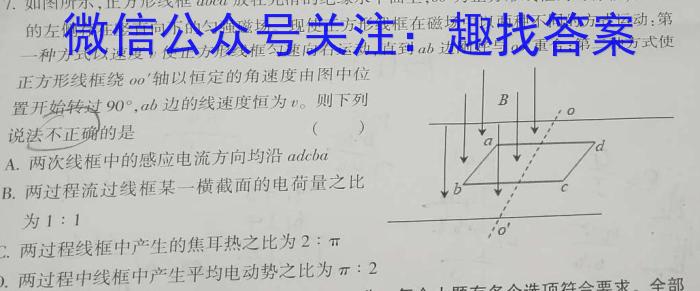 7. 如图所示,正方形线框 abcd 放在光滑的绝缘水平面上,
的左侧 匀强磁场 现使正方形线框在磁场 运动:第
微信公众号关注：趣找答案
一种方式以速度 v 使正方形线框匀速向右运动,直到 ab 边 重合;第二种方式使
正方形线框绕 oo′轴以恒定的角速度由图中位
置开始转过 90°,ab 边的线速度恒为 v。则下列
说法不正确的是 ( )
A. 两次线框中的感应电流方向均沿 adcba
B. 两过程流过线框某一横截面的电荷量之比
为 1∶1
C. 两过程线框中产生的焦耳热之比为 2∶π
D. 两过程中线框中产生平均电动势之比为 π∶2
B
o
a
d
b
c
o′
个选项符合要求。全部